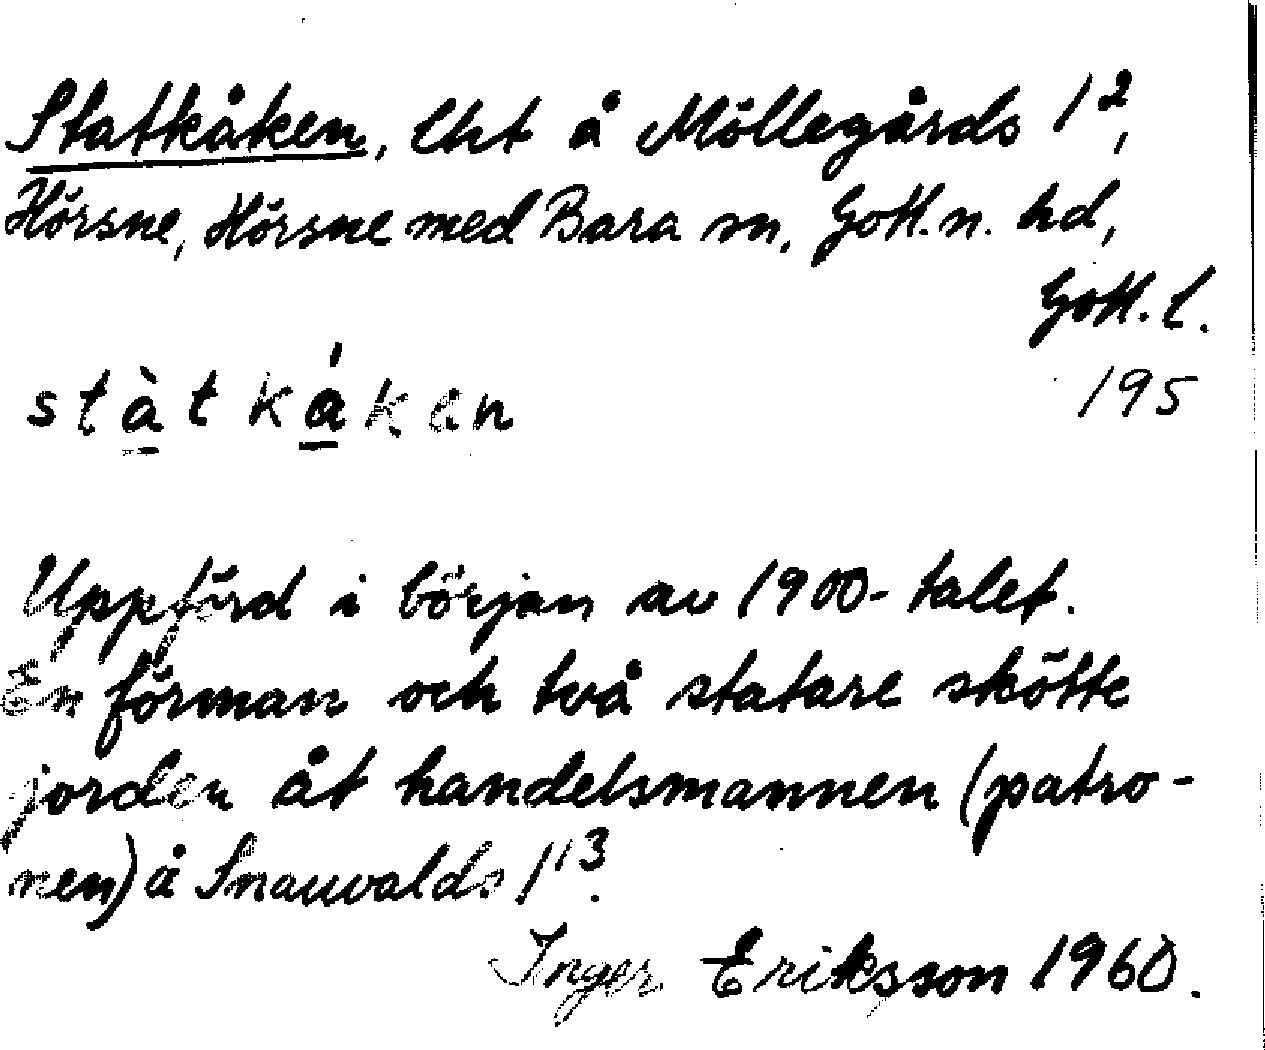 Statkåken, lht å Möllegårds 1²,
Hörsne, Hörsne med Bara sn, Gotl. n. hd,
Gotl. l.
stàtkákan
195
Uppförd i början av 1900-talet.
En förman och två statare skötte
jorden åt handelsmannen (patro-
nen) å Snauvalds 1¹³.
Inger Eriksson 1960.